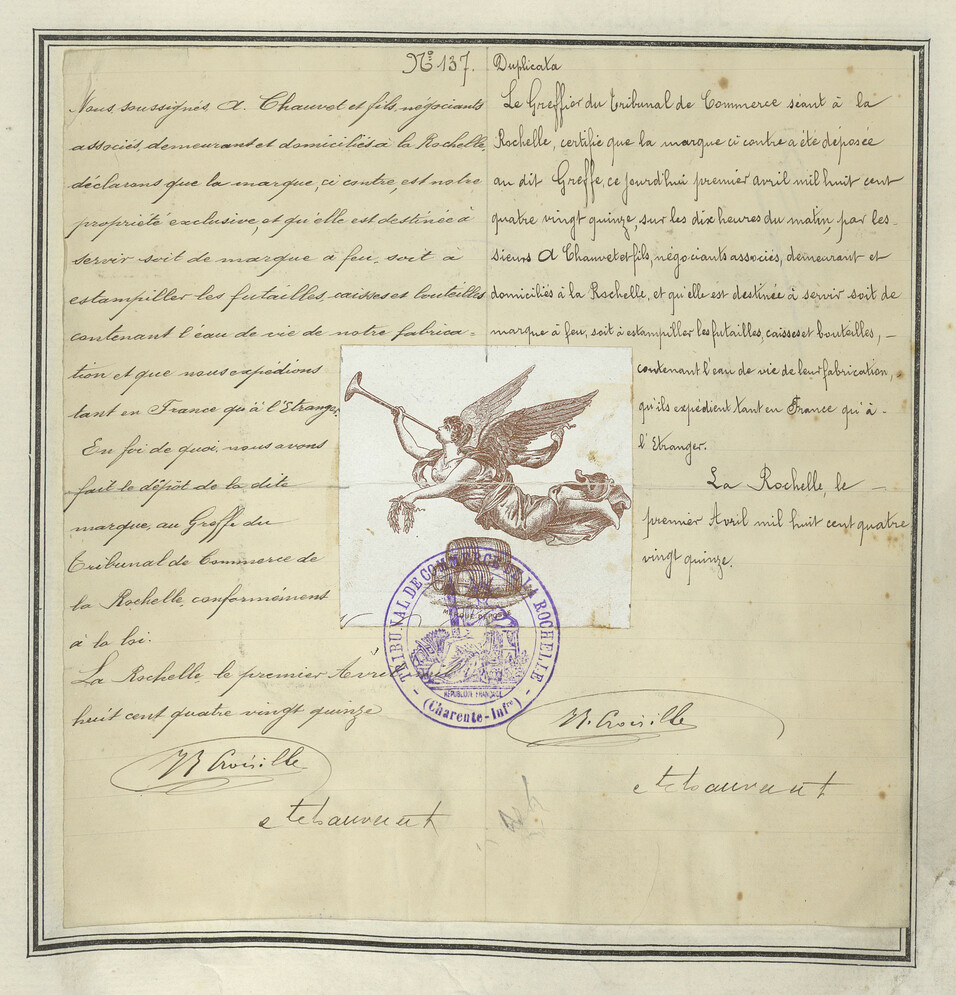 N° 137.
Nous soussignés A. Chauvet et fils, négociants
associés, demeurant et domiciliés à la Rochelle,
déclarons que la marque, ci contre est notre
propriété exclusive, et qu'elle est destinée à
servir soit de marque à feu, soit à
estampiller les futailles, caisses et bouteilles
contenant l'eau de vie de notre fabrica-
tion et que nous expédions
tant en France qu'à l'Etranger.
En foi de quoi, nous avons
fait le dépôt de la dite
marque, au Greffe du
Tribunal de Commerce de
la Rochelle, conformément
à la loi.
La Rochelle, le premier Avril
huit cent quatre vingt quinze
Duplicata
Le Greffier du Tribunal de Commerce séant à la
Rochelle, certifie que la marque ci contre a été déposée
au dit Greffe, ce jourd'hui premier avril mil huit cent
quatre vingt quinze, sur les dix heures du matin, par les
sieurs A Chauvet et fils, négociants associés, demeurant et
domiciliés à la Rochelle, et qu'elle est destinée à servir soit de
marque à feu, soit à estampiller les futailles, caisses et bouteilles, -
contenant l'eau de vie de leur fabrication,
qu'ils expédient tant en France qu'à -
l'Etranger.
La Rochelle, le -
premier Avril mil huit cent quatre
vingt quinze.
TRIBUNAL DE COMMERCE DE LA ROCHELLE
REPUBLIQUE FRANÇAISE
(Charente-Infre)
Croisille
Croisille